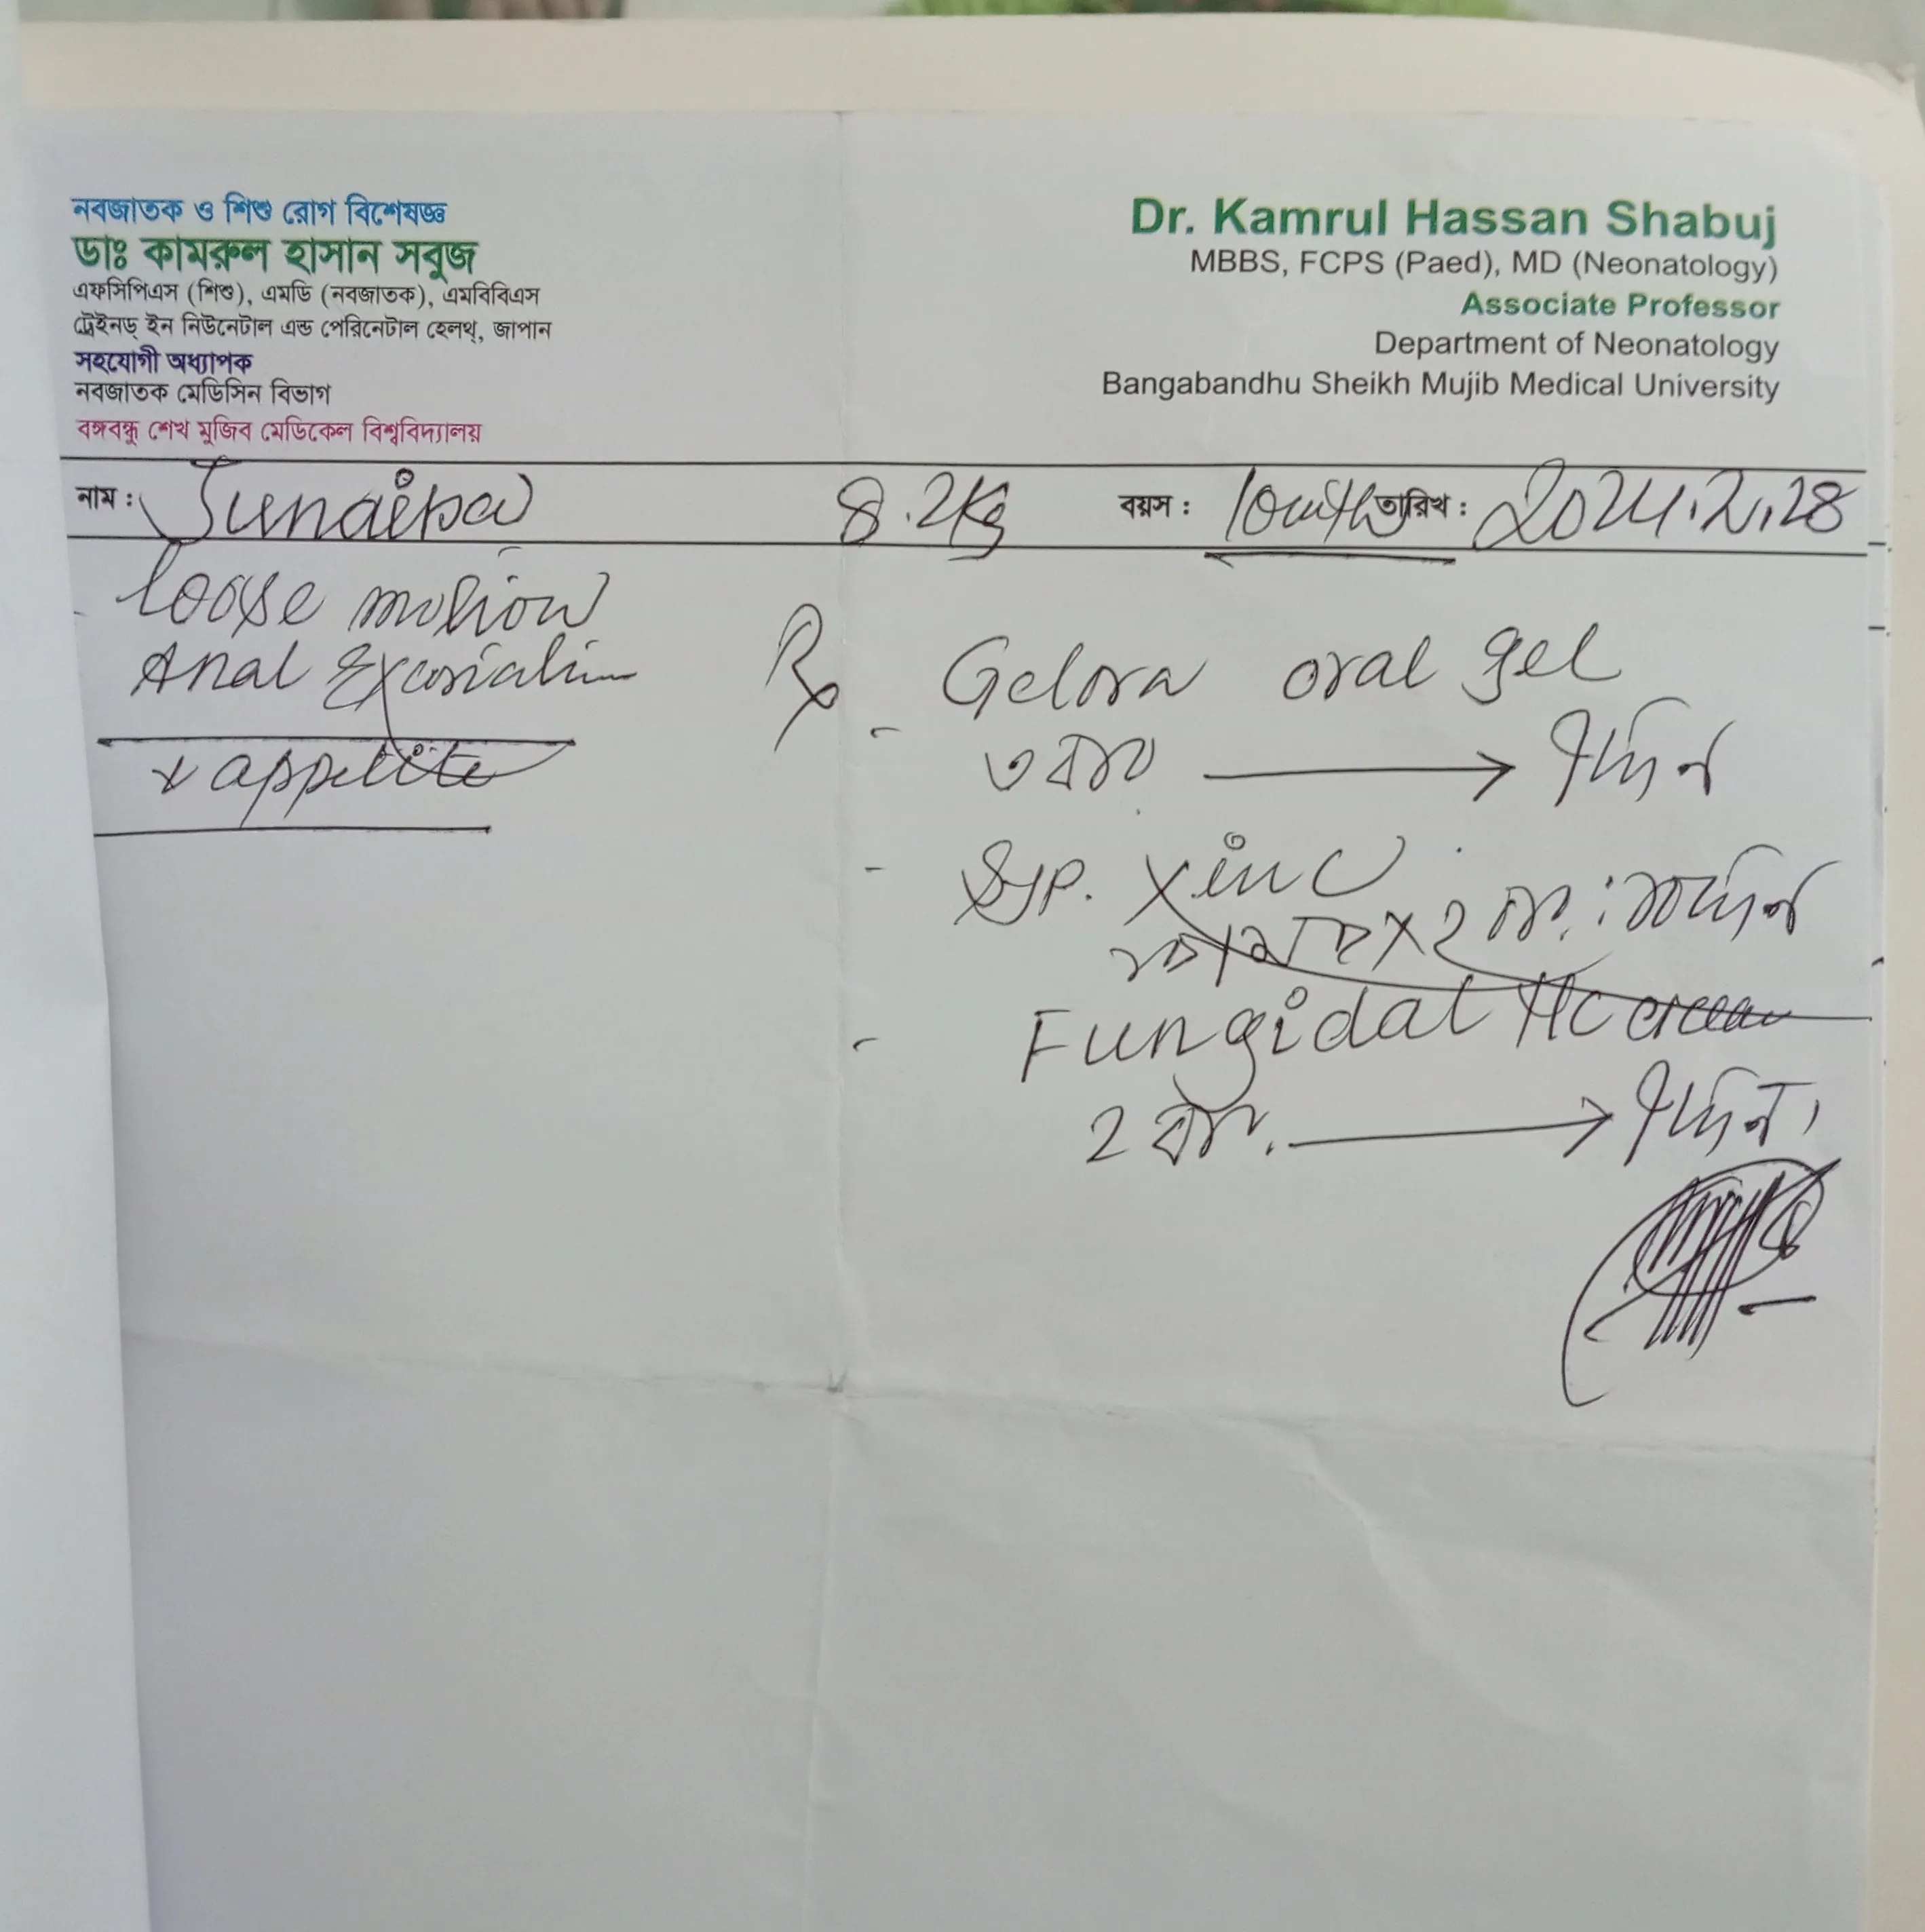 নবজাতক ও শিশু রোগ বিশেষজ্ঞ
ডাঃ কামরুল হাসান সবুজ
এফসিপিএস (শিশু), এমডি (নবজাতক), এমবিবিএস
ট্রেইনড্ ইন নিউনেটাল এন্ড পেরিনেটাল হেলথ্, জাপান
সহযোগী অধ্যাপক
নবজাতক মেডিসিন বিভাগ
বঙ্গবন্ধু শেখ মুজিব মেডিকেল বিশ্ববিদ্যালয়
Dr. Kamrul Hassan Shabuj
MBBS, FCPS (Paed), MD (Neonatology)
Associate Professor
Department of Neonatology
Bangabandhu Sheikh Mujib Medical University
নাম : 8.2Kg বয়স : তারিখ : 2024.2.28
loose motion
Anal Excoriation
appetite
Rx
- Gelora oral gel
৩ বার → ৭ দিন
- Syp. Xinc
- Fungidal HC cream
২ বার → ৭ দিন।